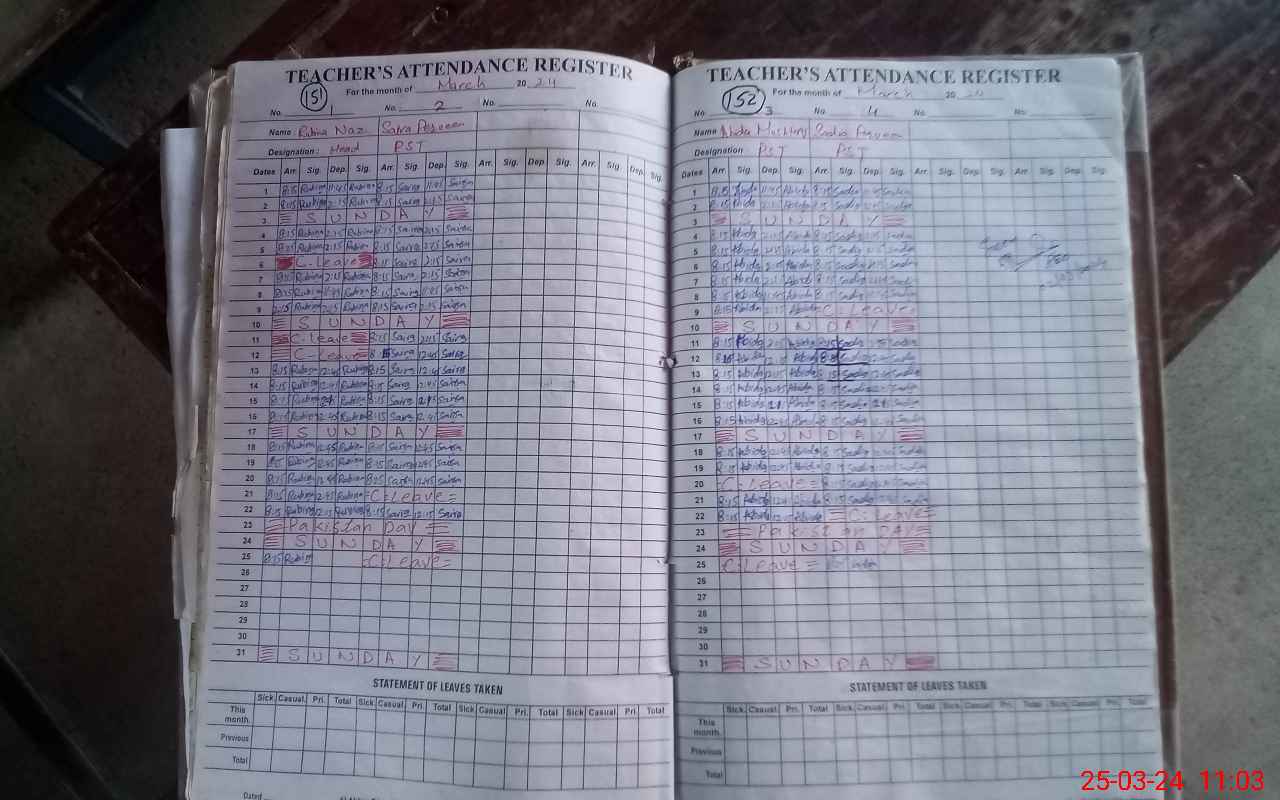 TEACHER'S ATTENDANCE REGISTER
151
For the month of March 20 24
No. 1 No. 2 No. No.
Name: Rubina Naz Saira Perveen
Designation: Head PST
Dates Arr. Sig. Dep. Sig. Arr. Sig. Dep. Sig. Arr. Sig. Dep. Sig. Arr. Sig. Dep. Sig.
1 8:15 Rubina 11:45 Rubina 8:15 Saira 11:45 Saira
2 8:15 Rubina 2:15 Rubina 8:15 Saira 2:15 Saira
3 SUNDAY
4 8:15 Rubina 2:15 Rubina 8:15 Saira 2:15 Saira
5 8:15 Rubina 2:15 Rubina 8:15 Saira 2:15 Saira
6 C.leave 8:15 Saira 2:15 Saira
7 8:15 Rubina 2:15 Rubina 8:15 Saira 2:15 Saira
8 8:15 Rubina 11:45 Rubina 8:15 Saira 11:45 Saira
9 Rubina 2:15 Rubina 8:15 Saira 2:15 Saira
10 SUNDAY
11 C.leave 8:15 Saira 2:15 Saira
12 C.leave Saira 12:45 Saira
13 8:15 Rubina 12:45 Rubina 8:15 Saira 12:45 Saira
14 8:15 Rubina 12:45 Rubina 8:15 Saira 12:45 Saira
15 8:15 Rubina Rubina 8:15 Saira Saira
16 8:15 Rubina 12:45 Rubina 8:15 Saira 12:45 Saira
17 SUNDAY
18 8:15 Rubina 12:45 Rubina 8:15 Saira 12:45 Saira
19 Rubina 12:45 Rubina 8:15 Saira 12:45 Saira
20 8:15 Rubina 12:45 Rubina 8:15 Saira 12:45 Saira
21 8:15 Rubina 12:45 Rubina C.Leave
22 8:15 Rubina Rubina 8:15 Saira Saira
23 Pakistan Day
24 SUNDAY
25 8:15 Rubina C.Leave
26
27
28
29
30
31 SUNDAY
STATEMENT OF LEAVES TAKEN
Sick Casual Pri. Total Sick Casual Pri. Total Sick Casual Pri. Total Sick Casual Pri. Total
This month.
Previous
Total
Dated
TEACHER'S ATTENDANCE REGISTER
152
For the month of March 20
No. 3 No. 4 No. No.
Name Abida Sadia Perveen
Designation: PST PST
Dates Arr. Sig. Dep. Sig. Arr. Sig. Dep. Sig. Arr. Sig. Dep. Sig. Arr. Sig. Dep. Sig.
1 Abida 11:45 Abida 8:15 Sadia Sadia
2 8:15 Abida 2:15 Abida 8:15 Sadia Sadia
3 SUNDAY
4 8:15 Abida 2:15 Abida 8:15 Sadia 2:15 Sadia
5 8:15 Abida 2:15 Abida 8:15 Sadia Sadia
6 8:15 Abida 2:15 Abida 8:15 Sadia 2:15 Sadia
7 8:15 Abida 2:15 Abida 8:15 Sadia Sadia
8 8:15 Abida Abida 8:15 Sadia Sadia
9 8:15 Abida 2:15 Abida C.Leave
10 SUNDAY
11 8:15 Abida 2:15 Abida Sadia Sadia
12 Abida Abida Sadia Sadia
13 8:15 Abida Abida 8:15 Sadia Sadia
14 8:15 Abida Abida 8:15 Sadia Sadia
15 8:15 Abida Abida 8:15 Sadia Sadia
16 8:15 Abida 8:15 Sadia Sadia
17 SUNDAY
18 8:15 Abida Abida 8:15 Sadia Sadia
19 8:15 Abida Abida 8:15 Sadia Sadia
20 C.Leave 8:15 Sadia Sadia
21 8:15 Abida Abida 8:15 Sadia Sadia
22 8:15 Abida Abida C.Leave
23 Pakistan DAY
24 SUNDAY
25 C.Leave
26
27
28
29
30
31 SUNDAY
STATEMENT OF LEAVES TAKEN
Sick Casual Pri. Total Sick Casual Pri. Total Sick Casual Pri. Total Sick Casual Pri. Total
This month.
Previous
Total
25-03-24 11:03